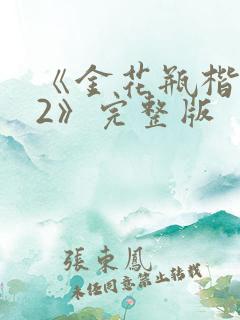 《金花瓶楷
2》完整版
張東鳳
未经同意禁止转载